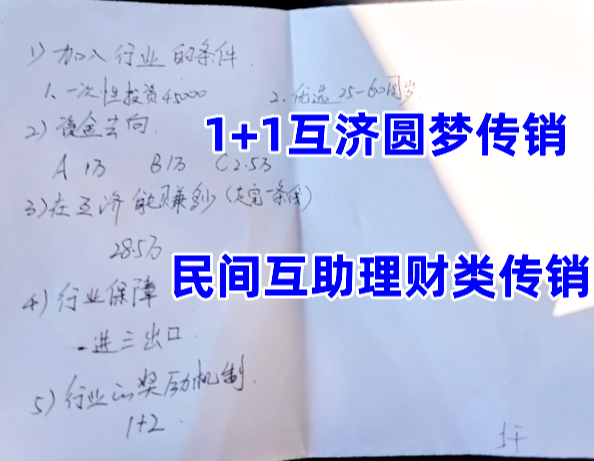 1) 加入行业的条件.
1、一次性投资45000 2、优选25-60周岁.
2) 资金去向
1+1互济圆梦传销
A 1万 B 1万 C 2.5万
3) 在互济能赚多少(走完一条线)
28.5万
民间互助理财类传销
4) 行业保障
一进三出口
5) 行业的奖励机制.
1+2.